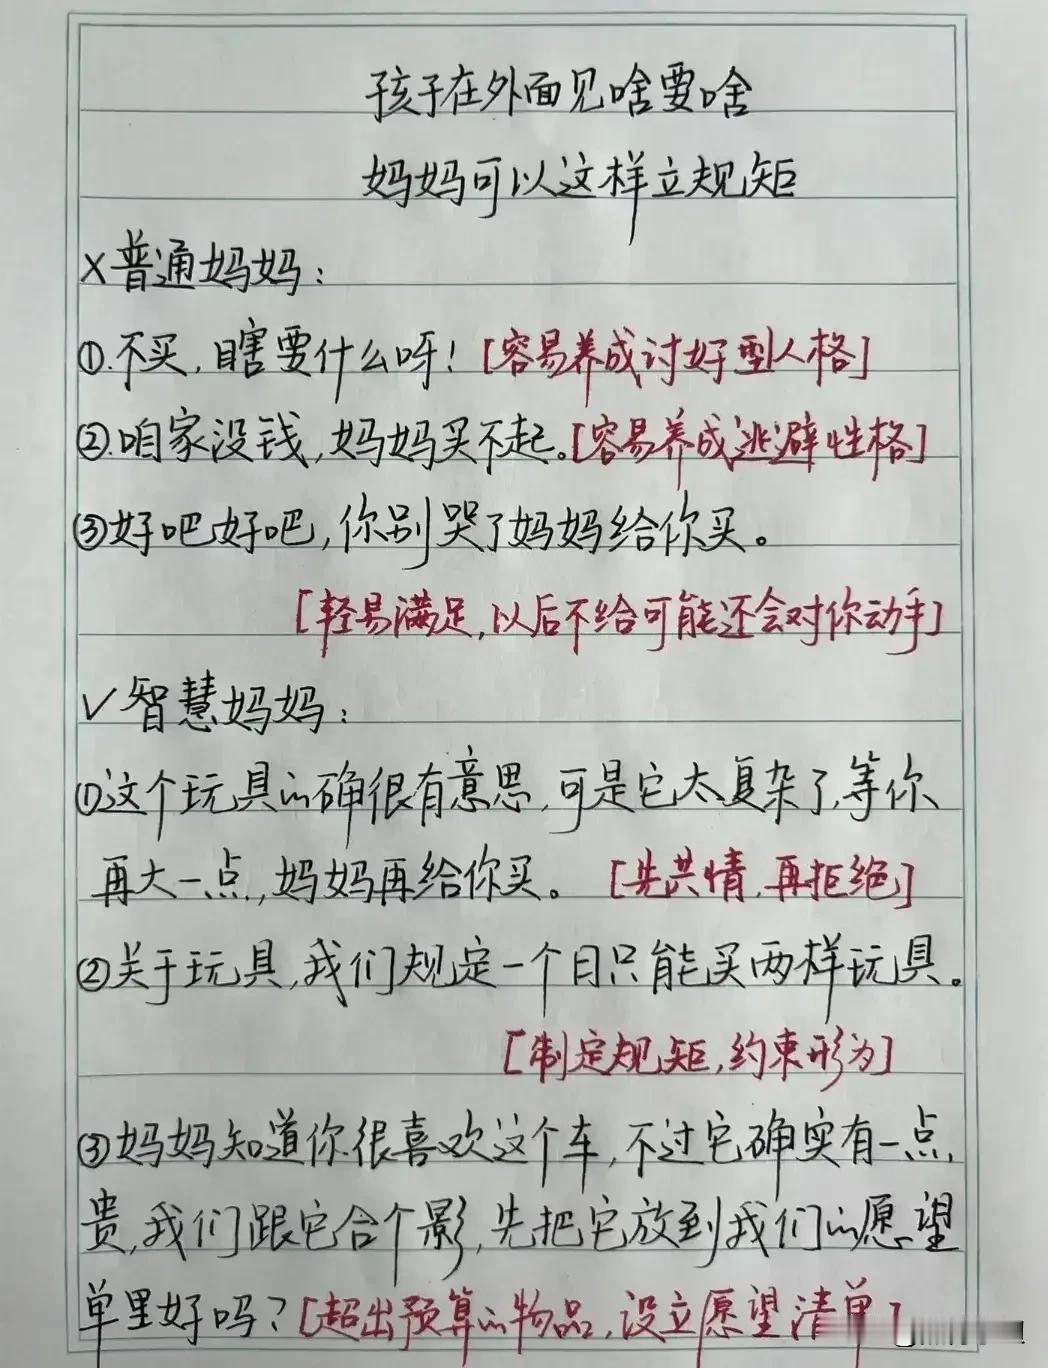 孩子在外面见啥要啥
妈妈可以这样立规矩
X普通妈妈：
①.不买，瞎要什么呀！[容易养成讨好型人格]
②.咱家没钱，妈妈买不起。[容易养成逃避性格]
③好吧好吧，你别哭了妈妈给你买。
[轻易满足，以后不给可能还会对你动手]
✓智慧妈妈：
①这个玩具的确很有意思，可是它太复杂了，等你
再大一点，妈妈再给你买。[先共情，再拒绝]
②关于玩具，我们规定一个月只能买两样玩具。
[制定规矩，约束形为]
③妈妈知道你很喜欢这个车，不过它确实有一点
贵，我们跟它合个影，先把它放到我们的愿望
单里好吗？[超出预算的物品，设立愿望清单]